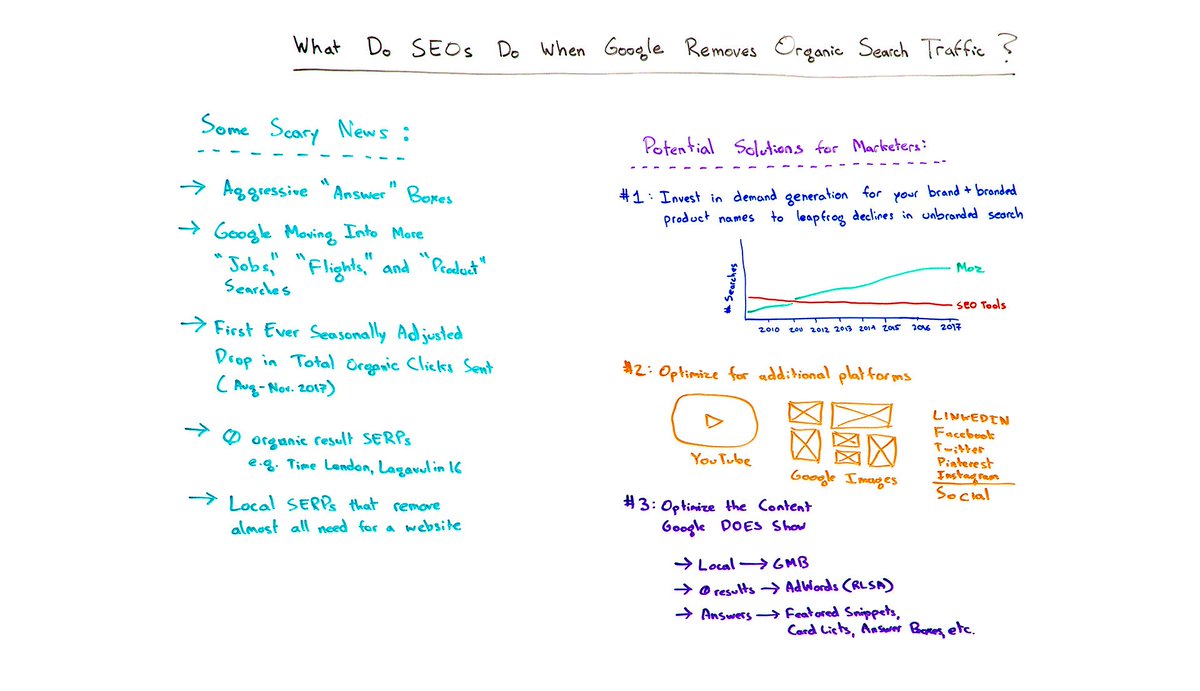 What Do SEOs Do When Google Removes Organic Search Traffic?
Some Scary News:
→ Aggressive "Answer" Boxes
→ Google Moving Into More
"Jobs," "Flights," and "Product"
Searches
→ First Ever Seasonally Adjusted
Drop in Total Organic Clicks Sent
(Aug-Nov. 2017)
→ 0 organic result SERPs
e.g. Time London, Lagavulin 16
→ Local SERPs that remove
almost all need for a website
Potential Solutions for Marketers:
#1: Invest in demand generation for your brand + branded
product names to leapfrog declines in unbranded search
# Searches
Moz
SEO Tools
2010 2011 2012 2013 2014 2015 2016 2017
#2: Optimize for additional platforms
YouTube
Google Images
LINKEDIN
Facebook
Twitter
Pinterest
Instagram
Social
#3: Optimize the Content
Google DOES Show
→ Local → GMB
→ 0 results → AdWords (RLSA)
→ Answers → Featured Snippets,
Card Lists, Answer Boxes, etc.